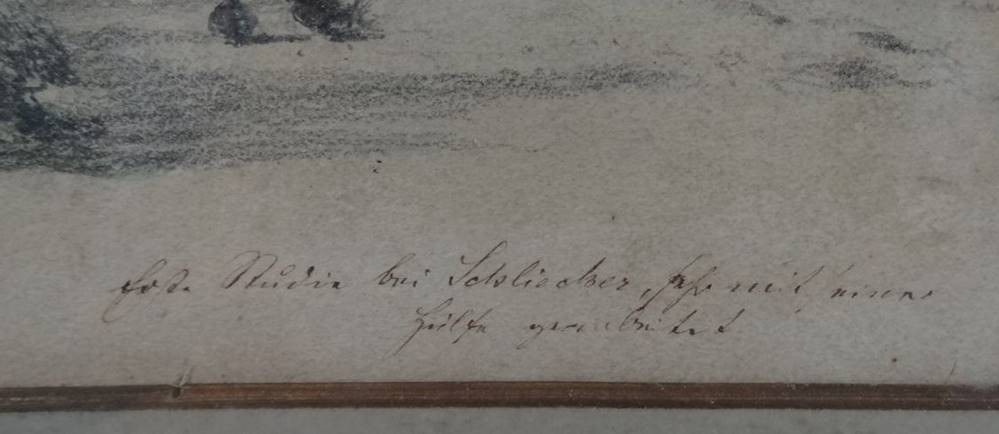 Erste Studie bei Schliecker, sehr mit seiner
Hülfe gearbeitet